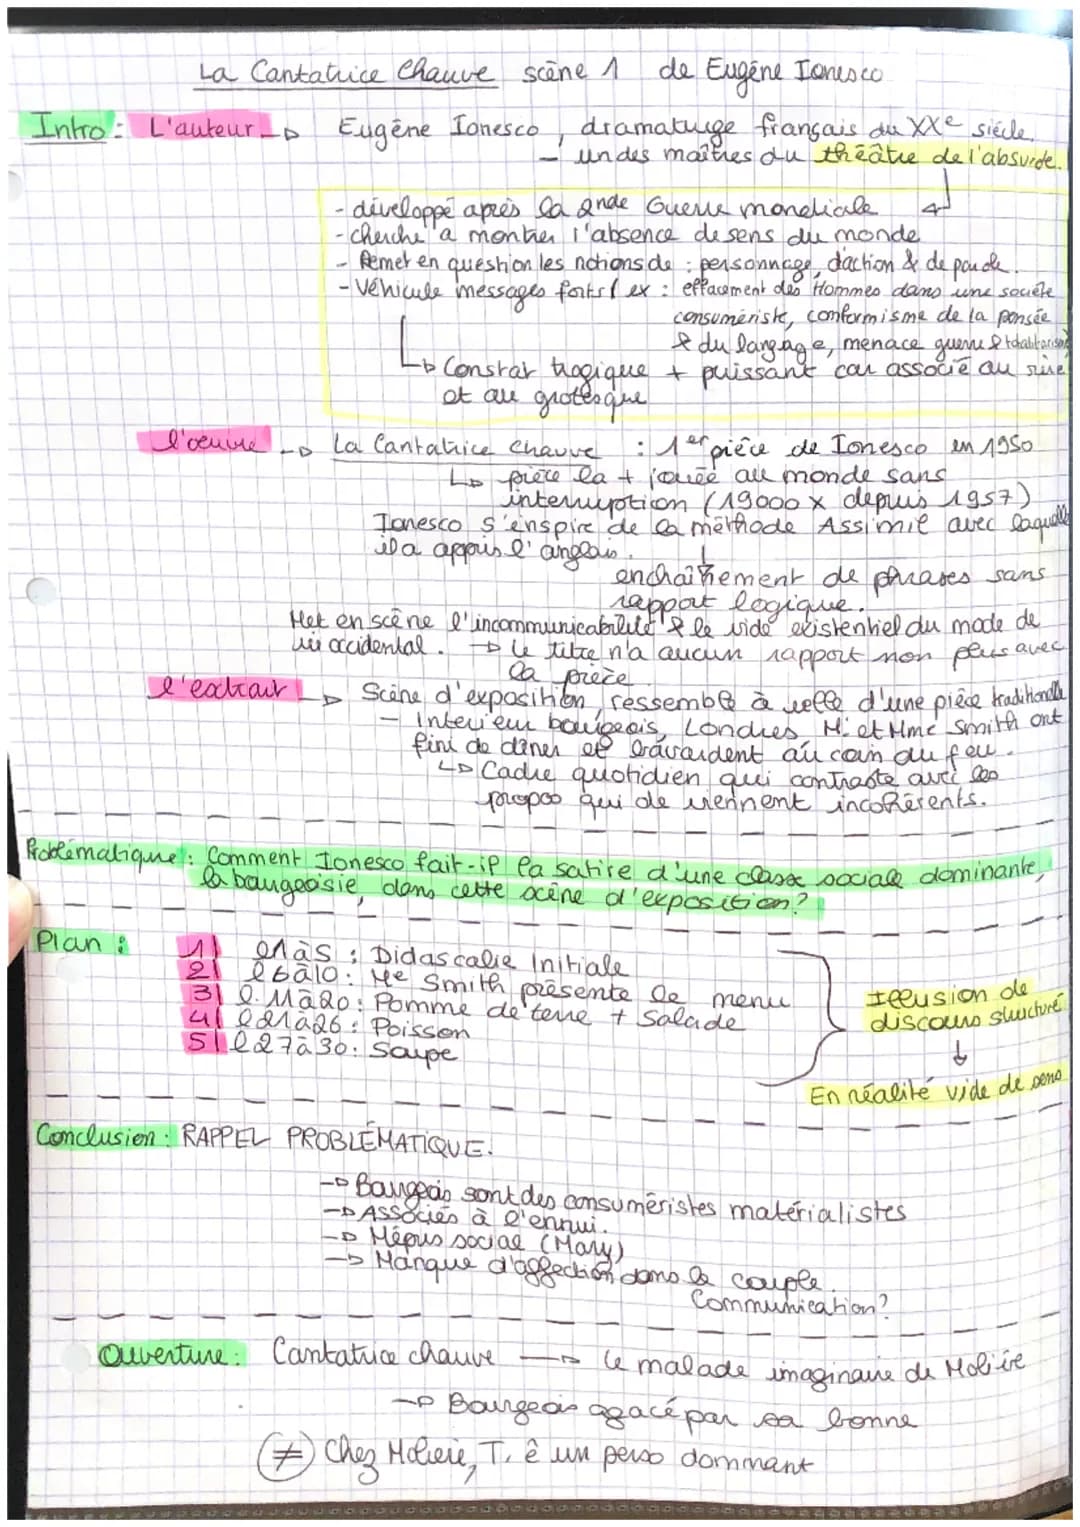 La Cantatrice Chauve scène 1 de Eugène Ionesco
Intro : L'auteur → Eugène Ionesco, dramatuge français du XXe siècle.
– un des maîtres du théâtre de l'absurde.
- développé après la 2nde Guerre mondiale
- cherche à montrer l'absence de sens du monde
- Remet en question les notions de : personnage, d'action & de parole.
- Véhicule messages forts ( ex : effacement des Hommes dans une société
consumériste, conformisme de la pensée
& du langage, menace guerre & totalitarisme)
↳ Constat tragique + puissant car associé au rire
et au grotesque
l'oeuvre → La Cantatrice chauve : 1er pièce de Ionesco en 1950
↳ pièce la + jouée au monde sans
interruption (19000 x depuis 1957)
Ionesco s'enspire de la méthode Assimil avec laquelle
il a appris l'anglais.
↓
enchaînement de phrases sans
rapport logique.
Met en scène l'incommunicabilité & le vide existentiel du mode de
vie occidental. → Le titre n'a aucun rapport non plus avec
la pièce
l'extrait → Scène d'exposition, ressemble à celle d'une pièce traditionelle
– Intérieur bourgeois, Londres M. et Mme Smith ont
fini de dîner et bavardent au coin du feu.
↳ Cadre quotidien qui contraste avec les
propos qui deviennent incohérents.
Problématique : Comment Ionesco fait-il la satire d'une classe sociale dominante,
la bourgeoisie, dans cette scène d'exposition ?
Plan :
1| l1à5 : Didascalie Initiale
2| l6à10 : Me Smith présente le menu
3| l.11à20 : Pomme de terre + Salade
4| l21à26 : Poisson
5| l27à30 : Soupe
Illusion de
discours structuré
↓
En réalité vide de sens
Conclusion : RAPPEL PROBLÉMATIQUE.
→ Bourgeois sont des consuméristes matérialistes
→ Associés à l'ennui.
→ Mépris social (Mary)
→ Manque d'affection dans le couple.
Communication?
Ouverture : Cantatrice chauve → Le malade imaginaire de Molière
→ Bourgeois agacé par sa bonne
≠ Chez Molière, T. ê un perso dominant